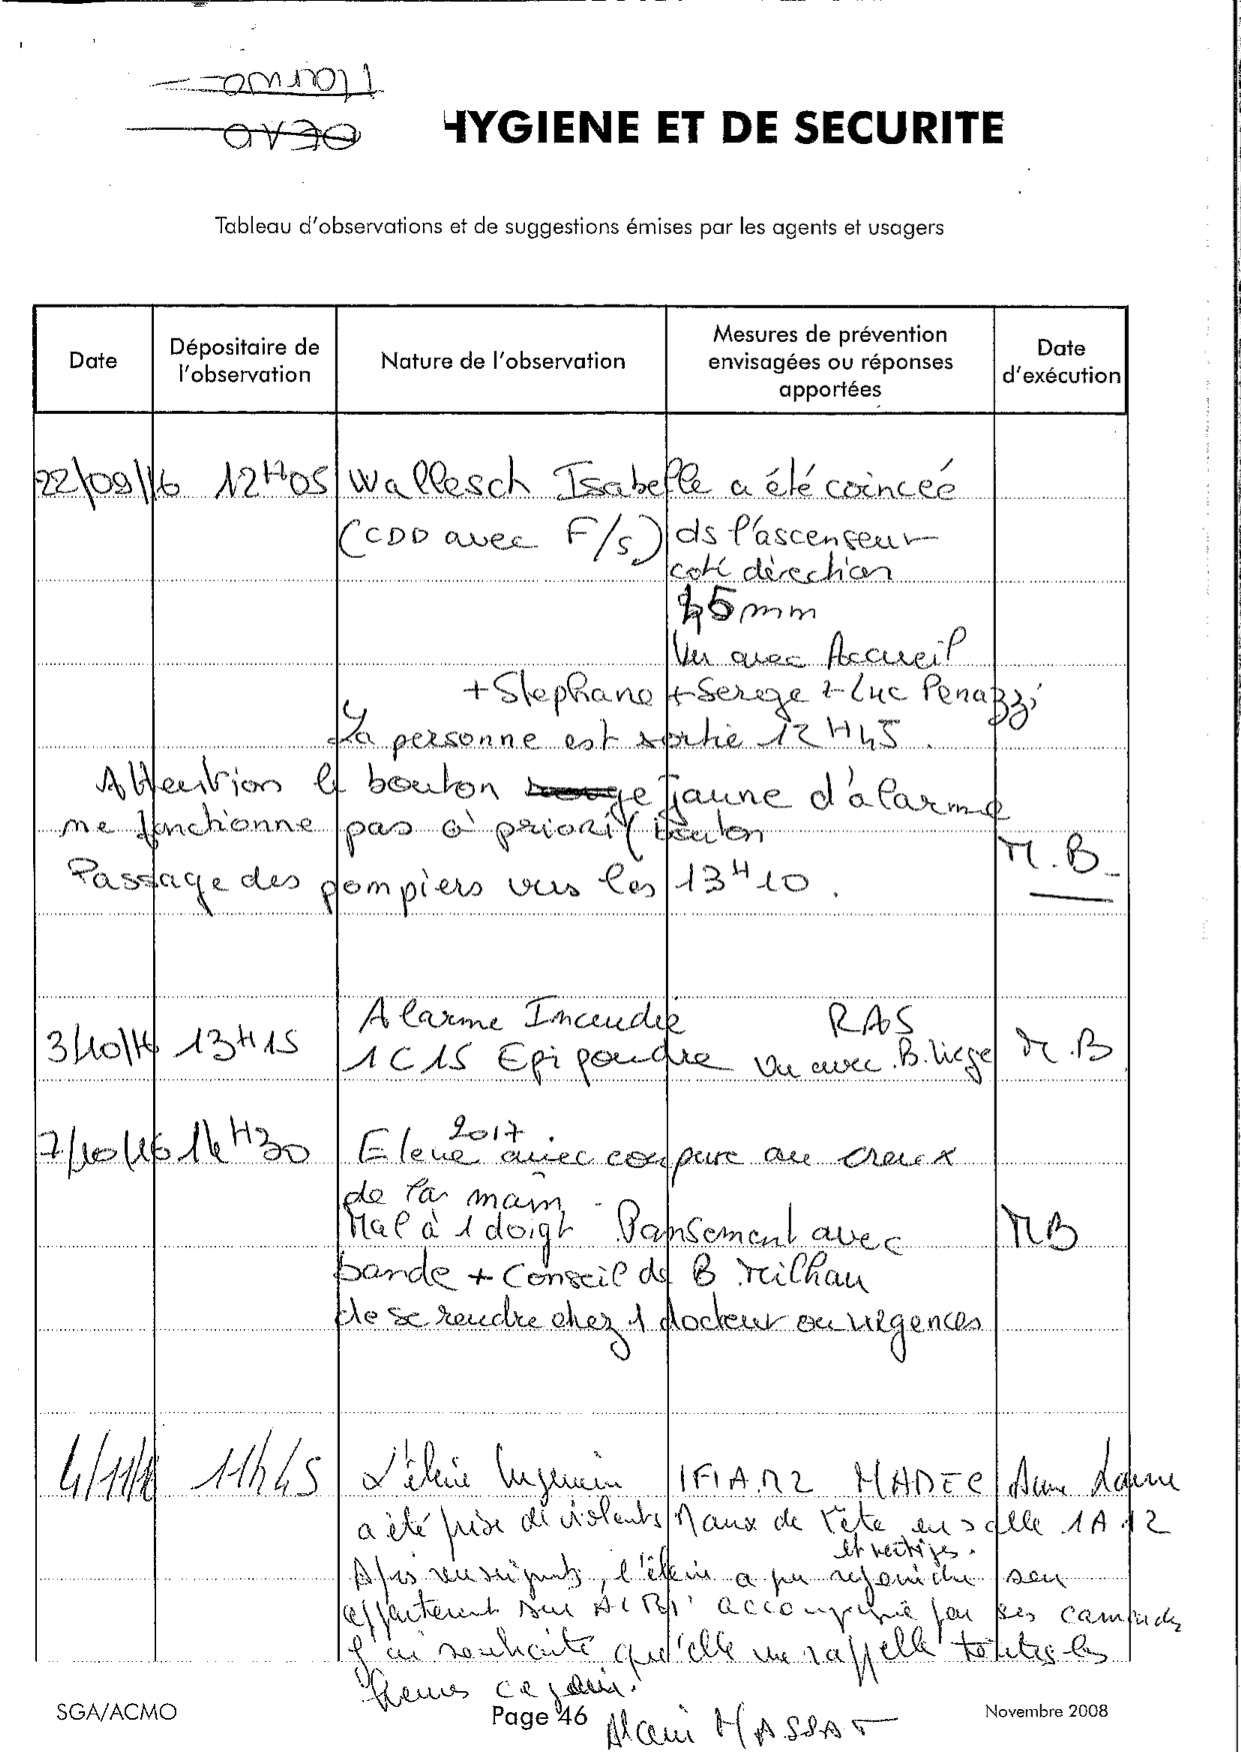 HYGIENE ET DE SECURITE
Tableau d'observations et de suggestions émises par les agents et usagers
Date
Dépositaire de l'observation
Nature de l'observation
Mesures de prévention envisagées ou réponses apportées
Date d'exécution
22/09/16 12H05 Wallesch Isabelle a été coincée
(CDD avec F/s) ds l'ascenseur
coté direction
45 mm
Vu avec Accueil
+ Stephane + Serege + Luc Penazzi
La personne est sortie 12H45.
Attention le bouton jaune d'alarme
ne fonctionne pas a priori bouton
Passage des pompiers vers les 13H10. M.B.
Alarme Incendie RAS
3/10/16 13H15 1C15 Epi poudre Vu avec B. Liege M.B
2017
7/10/16 14H30 Eleve avec coupure au creux
de la main.
Mal à 1 doigt Pansement avec MB
bande + Conseil de B Meilhau
de se rendre chez 1 docteur ou urgences
4/11/16 11h45 L'élève Ingénieur IFIAM2 MADEC Anne Laure
a été prise de violents Maux de tête en salle 1A12
et vertiges.
Après , l'élève a pu rejoindre son
appartement sur accompagnée par ses camarades
J'ai souhaité qu'elle me rappelle toutes les
heures ce jour.
Alain MASSAT
SGA/ACMO
Page 46
Novembre 2008